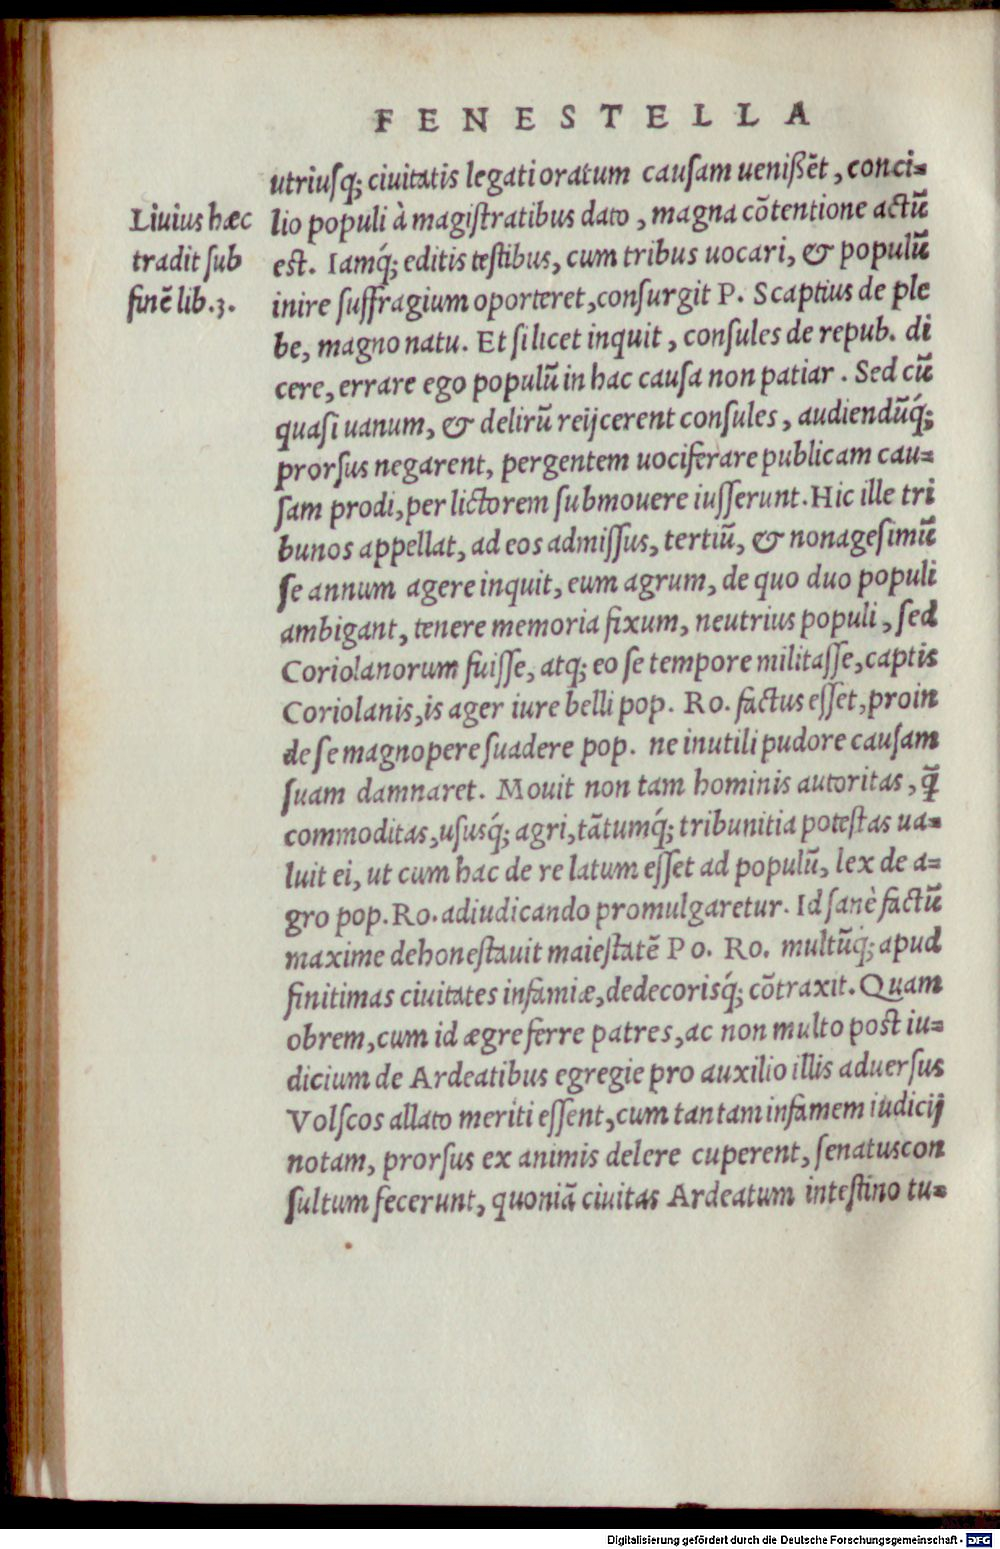 FENESTELLA
utriusq́; ciuitatis legati oratum causam uenißēt, conci-
lio populi à magistratibus dato, magna cōtentione actū
est. Iamq́; editis testibus, cum tribus uocari, & populū
inire suffragium oporteret, consurgit P. Scaptius de ple
be, magno natu. Et si licet inquit, consules de repub. di
cere, errare ego populū in hac causa non patiar. Sed cū
quasi uanum, & delirū reijcerent consules, audiendūq́;
prorsus negarent, pergentem uociferare publicam cau-
sam prodi, per lictorem submouere iusserunt. Hic ille tri
bunos appellat, ad eos admissus, tertiū, & nonagesimū
se annum agere inquit, eum agrum, de quo duo populi
ambigant, tenere memoria fixum, neutrius populi, sed
Coriolanorum fuisse, atq; eo se tempore militasse, captis
Coriolanis, is ager iure belli pop. Ro. factus esset, proin
de se magnopere suadere pop. ne inutili pudore causam
suam damnaret. Mouit non tam hominis autoritas, q̄
commoditas, ususq́; agri, tātumq́; tribunitia potestas ua-
luit ei, ut cum hac de re latum esset ad populū, lex de a-
gro pop. Ro. adiudicando promulgaretur. Id sanè factū
maxime dehonestauit maiestatē Po. Ro. multūq́; apud
finitimas ciuitates infamiæ, dedecorisq́; cōtraxit. Quam
obrem, cum id ægre ferre patres, ac non multo post iu-
dicium de Ardeatibus egregie pro auxilio illis aduersus
Volscos allato meriti essent, cum tantam infamem iudicij
notam, prorsus ex animis delere cuperent, senatuscon
sultum fecerunt, quoniā ciuitas Ardeatum intestino tu-
Liuius hæc
tradit sub
finē lib. 3.
Digitalisierung gefördert durch die Deutsche Forschungsgemeinschaft - DFG